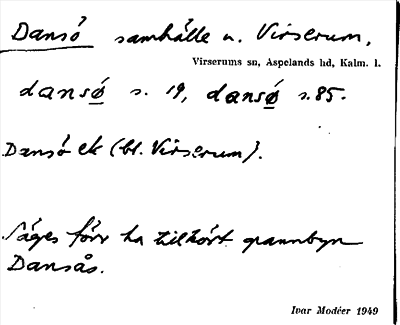 Dansö samhälle u. Virserum,
Virserums sn, Aspelands hd, Kalm. l.
dansǿ s. 19, dansǿ s. 85.
Dansö ek (bl. Virserum).
Säges förr ha tillhört grannbyn
Dansås.
Ivar Modéer 1949